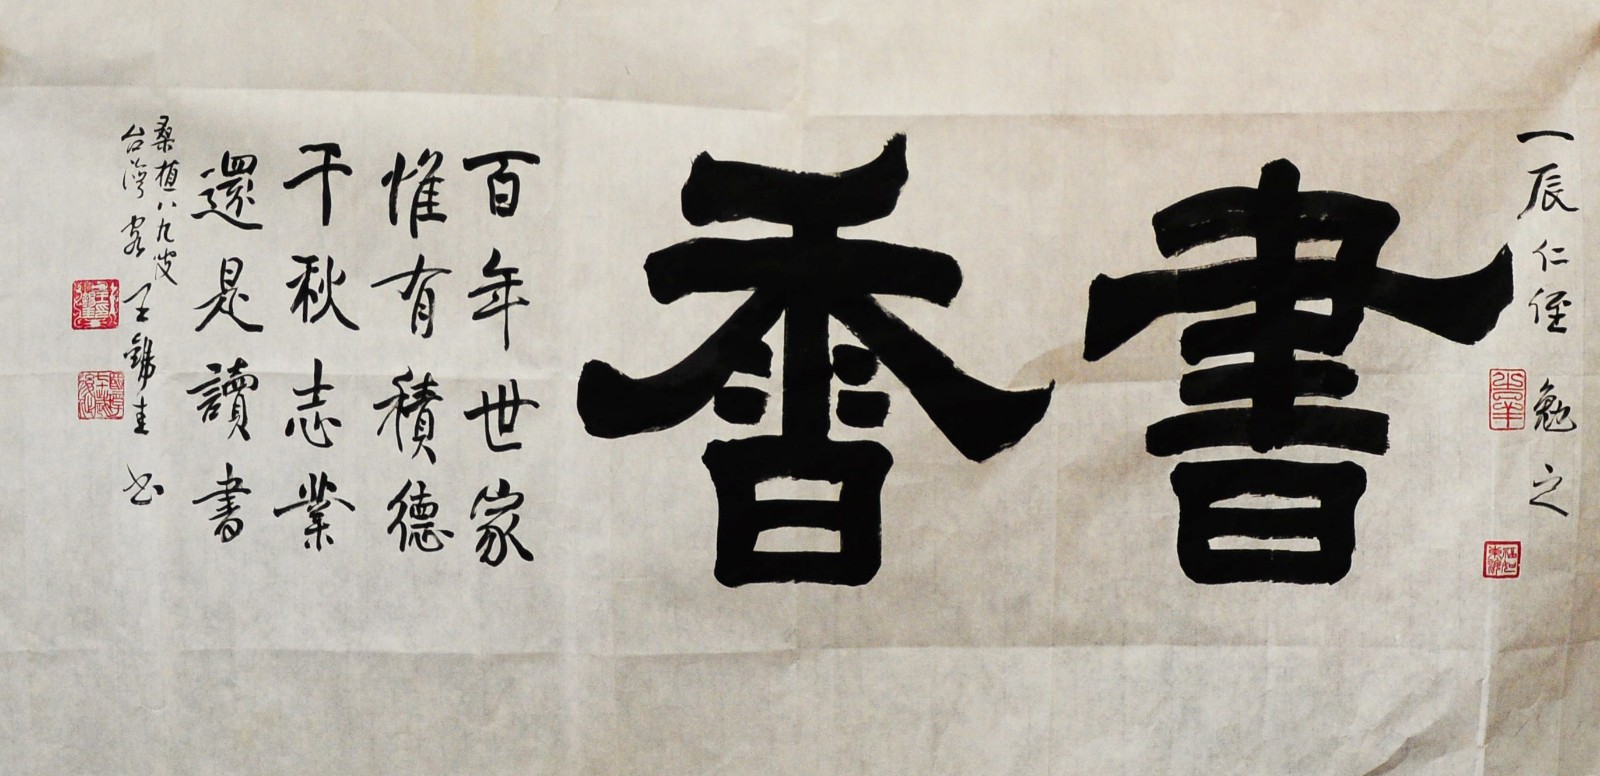 一辰仁侄勉之
書香
百年世家
惟有積德
千秋志業
還是讀書
桑植八九叟
台灣客
王錦圭书